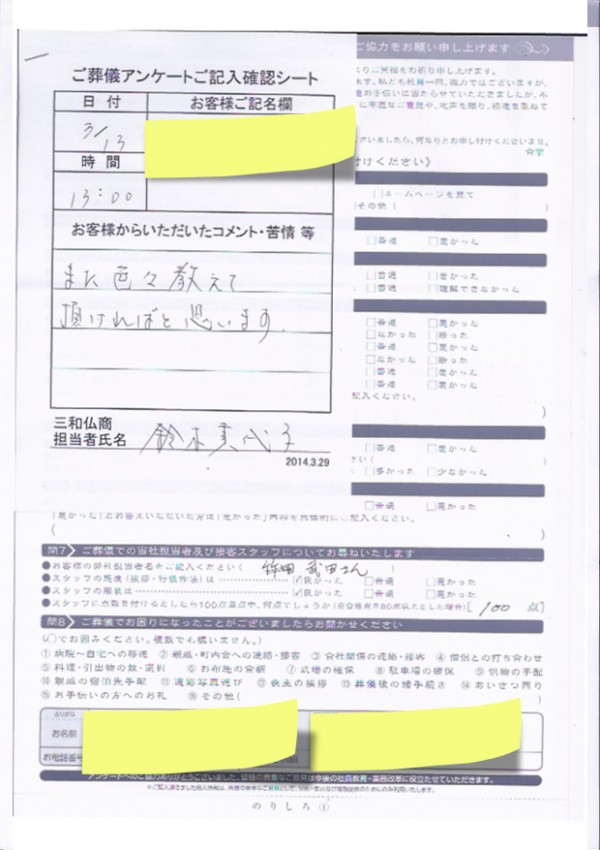 ご協力をお願い申し上げます
ご葬儀アンケートご記入確認シート
日付
お客様ご記名欄
3/13
時間
13:00
お客様からいただいたコメント・苦情 等
また色々教えて
頂ければと思います.
三和仏商
担当者氏名
2014.3.29
付けください》
□ホームページを見て
□その他(
□普通 □悪かった
□普通 □悪かった
□普通 □理解できなかった
□普通 □悪かった
□なかった □断った
□普通 □悪かった
□なかった □断った
□普通 □悪かった
□普通 □悪かった
記入ください。
□普通 □悪かった
□多かった □少なかった
□普通 □悪かった
問7 ご葬儀での当社担当者及び接客スタッフについてお尋ねいたします
●お客様の弊社担当者名をご記入ください(
●スタッフの態度(挨拶・行儀作法)は □良かった □普通 □悪かった
●スタッフの服装は □良かった □普通 □悪かった
●スタッフに点数を付けるとしたら100点満点中、何点でしょうか(※合格点を80点以上とした場合)[ 100 点]
問8 ご葬儀でお困りになったことがございましたらお聞かせください
(○でお囲みください。複数でも構いません。)
①病院～自宅への移送 ②親戚・町内会への連絡・接客 ③会社関係の連絡・接客 ④僧侶との打ち合わせ
⑤料理・引出物の数・選択 ⑥お布施の金額 ⑦式場の確保 ⑧駐車場の確保 ⑨供物の手配
⑩親戚の宿泊先手配 ⑪遺影写真選び ⑫喪主の挨拶 ⑬葬儀後の諸手続き ⑭あいさつ周り
⑮お手伝いの方へのお礼 ⑯その他(
ふりがな
お名前
お電話番号
アンケートへのご協力ありがとうございました。皆様の貴重なご意見は今後の社員教育・業務改革に役立たせていただきます。
のりしろ①